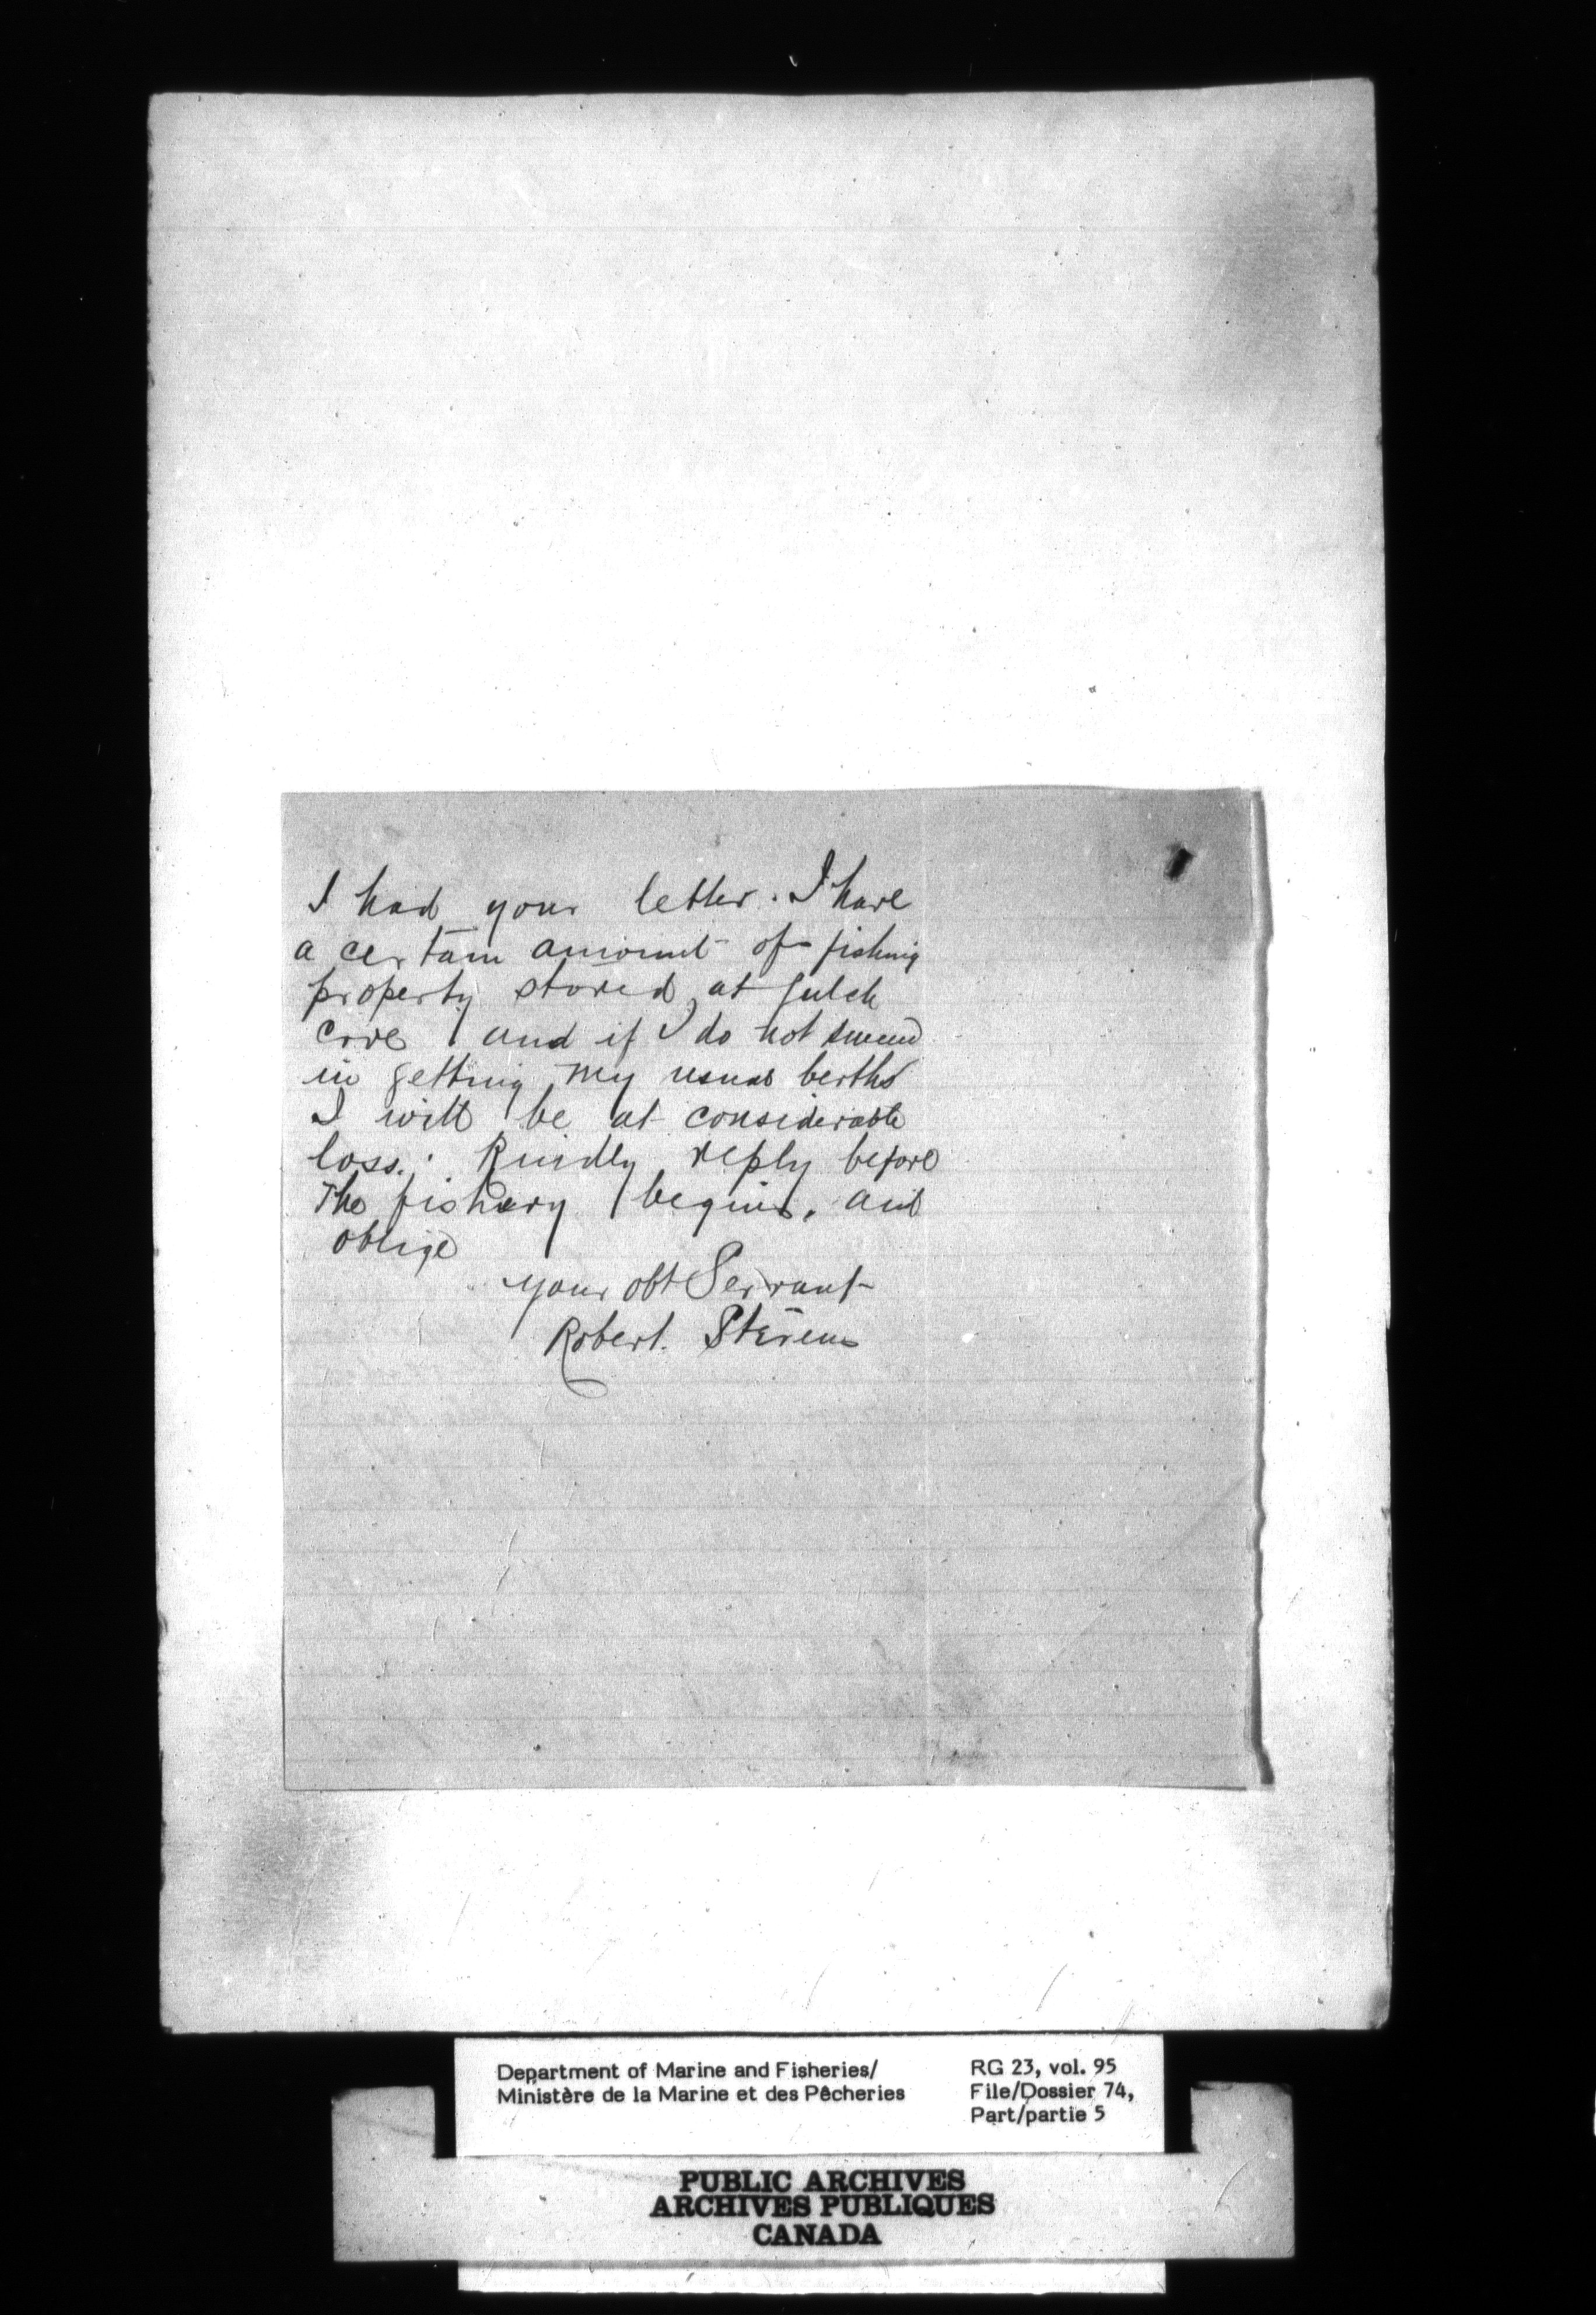 I had your letter. I have
a certain amount of fishing
property stored at Gulch
Cove and if I do not succeed
in getting my usual berths
I will be at considerable
loss. Kindly reply before
The fishery begins, and
oblige
your obt Servant
Robert. Stevens
Department of Marine and Fisheries/
Ministère de la Marine et des Pêcheries
RG 23, vol. 95
File/Dossier 74,
Part/partie 5
PUBLIC ARCHIVES
ARCHIVES PUBLIQUES
CANADA